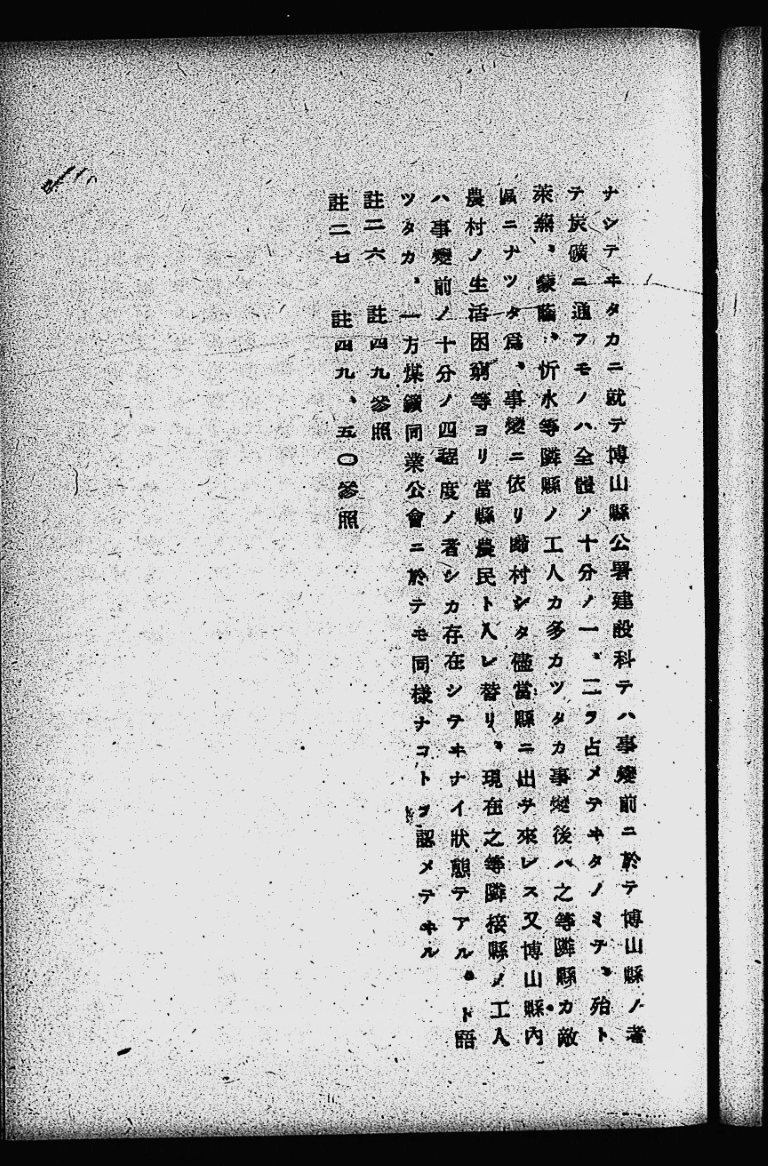 ナシテヰタカニ就テ博山縣公署建設科テハ事變前ニ於テ博山縣ノ者
テ炭礦ニ通フモノハ全體ノ十分ノ一、二ヲ占メテヰタノミテ、殆ト
萊蕪、蒙陰、忻水等隣縣ノ工人カ多カツタカ事變後ハ之等隣縣カ敵
區ニナツタ爲、事變ニ依リ歸村シタ儘當縣ニ出テ來レス又博山縣內
農村ノ生活困窮等ヨリ當縣農民ト入レ替リ、現在之等隣接縣ノ工人
ハ事變前ノ十分ノ四程度ノ者シカ存在シテヰナイ狀態テアル。ト語
ツタカ、一方煤鑛同業公會ニ於テモ同樣ナコトヲ認メテヰル
註二六　註四九參照
註二七　註四九、五〇參照